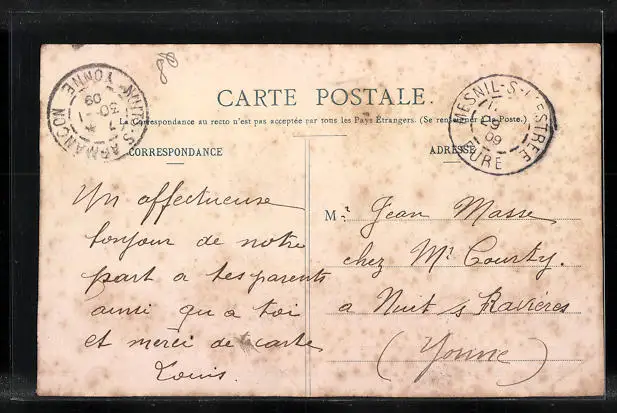 CARTE POSTALE.
La Correspondance au recto n'est pas acceptée par tous les Pays Étrangers. (Se renseigner à la Poste.)
CORRESPONDANCE
ADRESSE
Un affectueuse
bonjour de notre
part a tes parents
ainsi qu a toi
et merci de carte
Louis.
Mr Jean Masse
chez Mr Courty.
a Nuit s Ravières
(Yonne)
NUITS-S-ARMANÇON
YONNE
30 -1
09
MESNIL-S-L'ESTRÉE
EURE
09